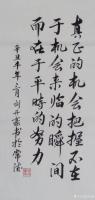 真正的机会把握不在
于机会来临的瞬间
而在于平時的努力
辛丑年三月刘开豪书於常德